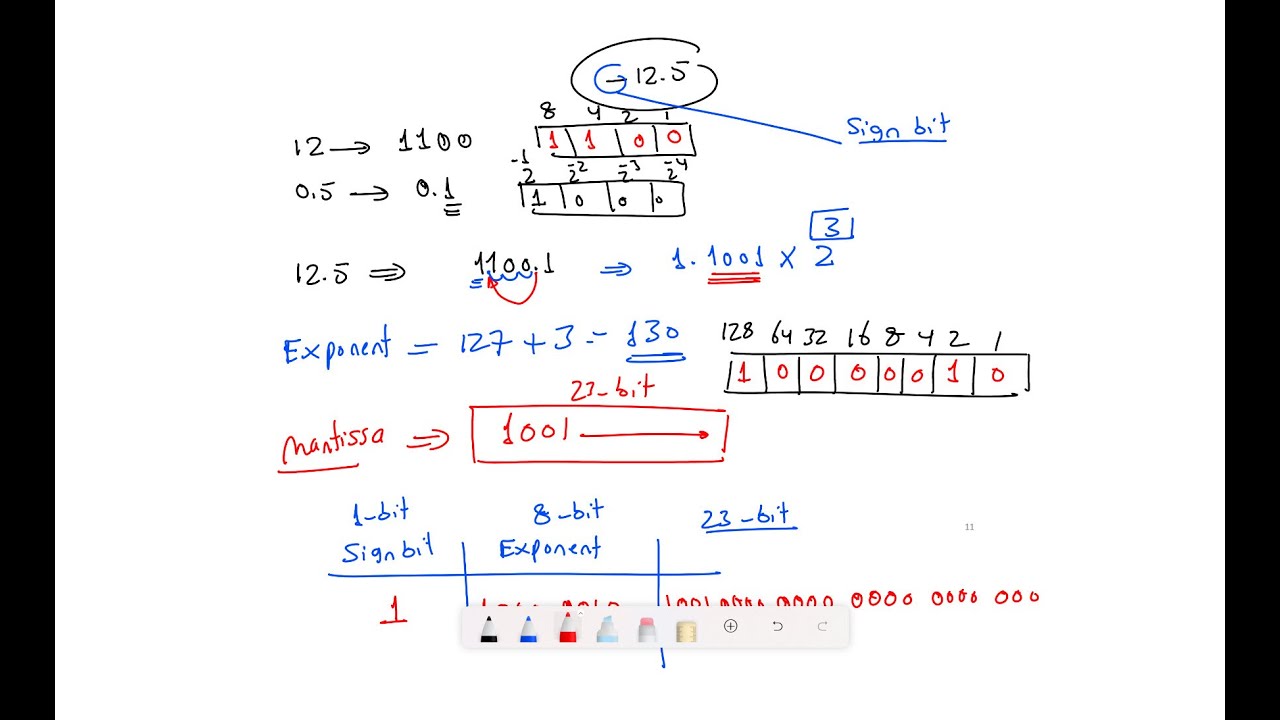 -12.5
Sign bit
8 4 2 1
12 → 1100 1 1 0 0
2^-1 2^-2 2^-3 2^-4
0.5 → 0.1 1 0 0 0
12.5 ⇒ 1100.1 ⇒ 1.1001 × 2^3
Exponent = 127 + 3 = 130
128 64 32 16 8 4 2 1
1 0 0 0 0 0 1 0
23-bit
Mantissa ⇒ 1001
1-bit 8-bit 23-bit
Sign bit Exponent
11
1 1000 0010 1001 0000 0000 0000 0000 000